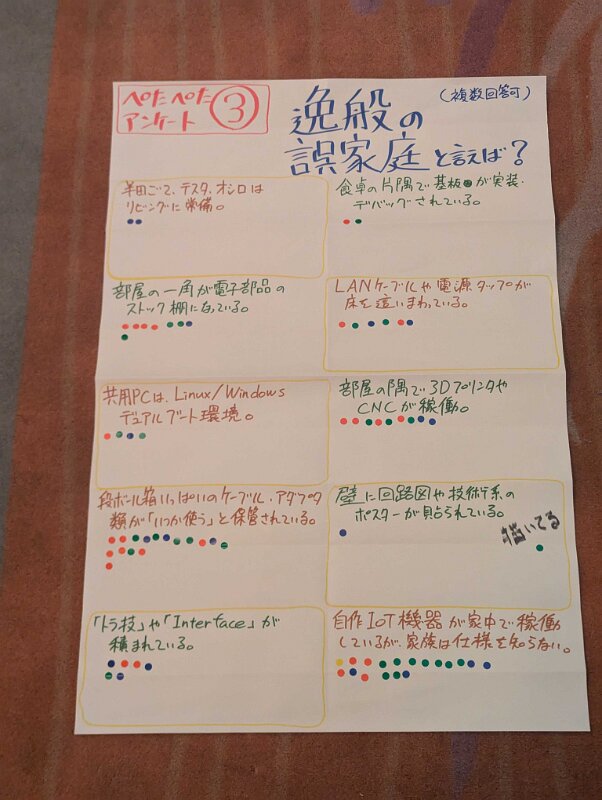 ペたペた
アンケート ③
(複数回答可)
逸般の
誤家庭と言えば?
半田ごて、テスタ、オシロは
リビングに常備。
食卓の片隅で基板が実装・
デバッグされている。
部屋の一角が電子部品の
ストック棚になっている。
LANケーブルや電源タップが
床を這いまわっている。
共用PCは、Linux/Windows
デュアルブート環境。
部屋の隅で3Dプリンタや
CNCが稼働。
段ボール箱いっぱいのケーブル・アダプタ
類が「いつか使う」と保管されている。
壁に回路図や技術系の
ポスターが貼られている。
描いてる
「トラ技」や「Interface」が
積まれている。
自作IOT機器が家中で稼働
しているが、家族は仕様を知らない。